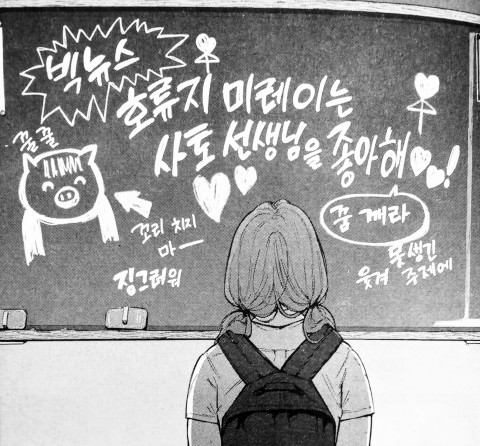 빅뉴스
호류지 미레이는
사토 선생님을 좋아해!
꿀꿀
꼬리 치지
마ー
징그러워
꿈 깨라
못생긴
주제에
웃겨